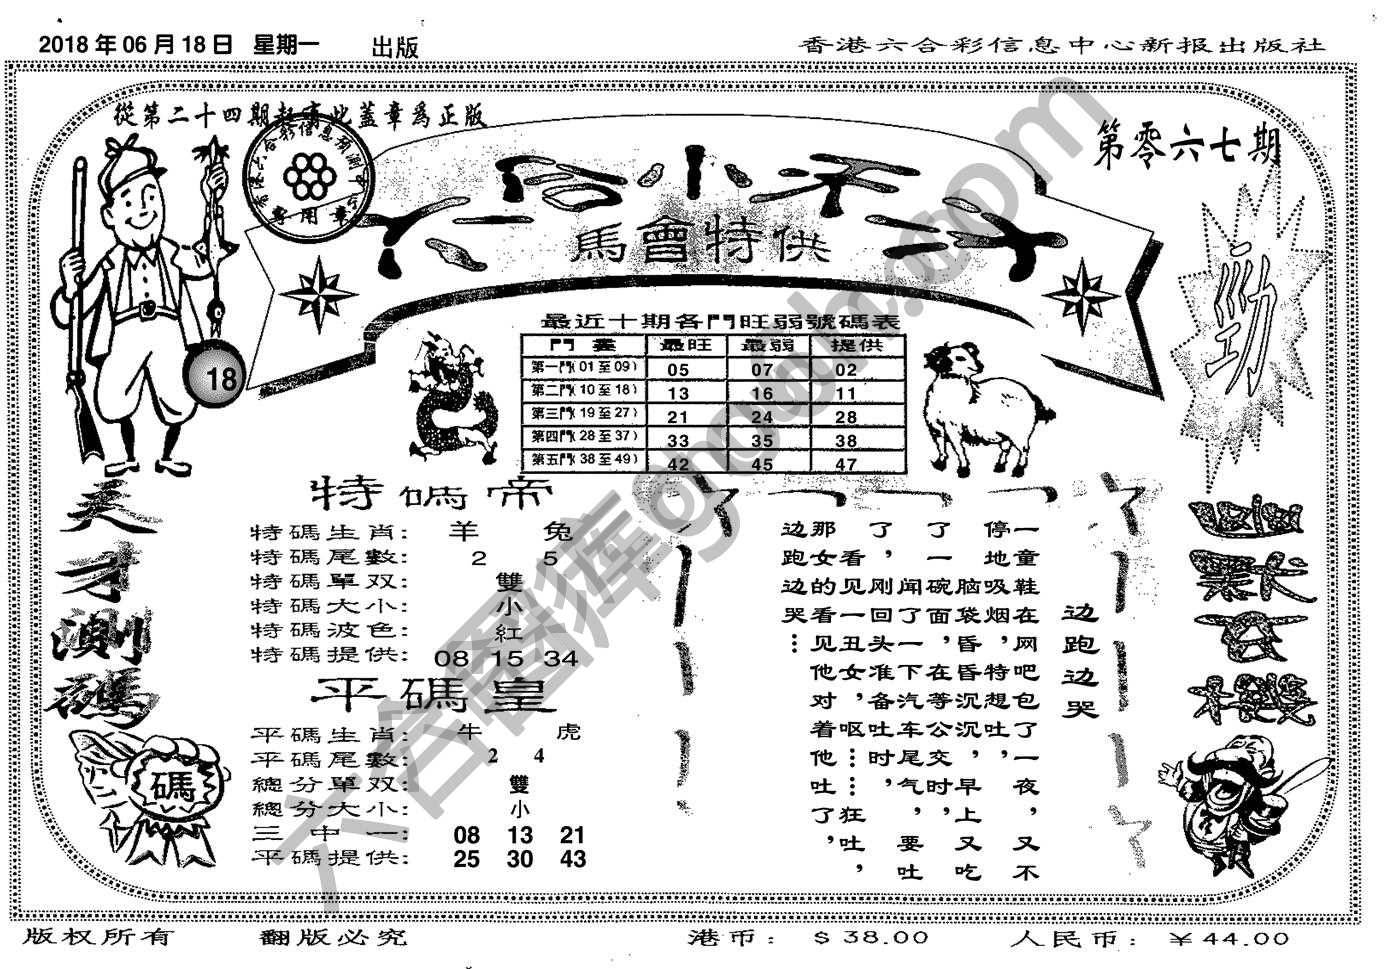 2018年06月18日 星期一 出版
香港六合彩信息中心新报出版社
從第二十四期起寄此蓋章爲正版
第零六七期
馬會特供
勁
18
最近十期各門旺弱號碼表
門 最旺 最弱 提供
第一門(01至09) 05 07 02
第二門(10至18) 13 16 11
第三門(19至27) 21 24 28
第四門(28至37) 33 35 38
第五門(38至49) 42 45 47
天才測碼
特碼帝
特碼生肖: 羊 兔
特碼尾數: 2 5
特碼單双: 雙
特碼大小: 小
特碼波色: 紅
特碼提供: 08 15 34
平碼皇
平碼生肖: 牛 虎
平碼尾數: 2 4
總分單双: 雙
總分大小: 小
三中一: 08 13 21
平碼提供: 25 30 43
碼
边跑边哭
一童鞋在网吧包了一夜，又不
停地吸烟，特想吐，
脑袋昏昏沉沉，早上又吃
了一碗面，在等公交时，
闻了一下汽车尾气，要吐
了，刚回头准备吐时，
了看见一丑女，呕……狂吐，
那女的看见他对着他吐了，
边跑边哭…
版权所有 翻版必究
港币: $38.00 人民币: ￥44.00
六合图库